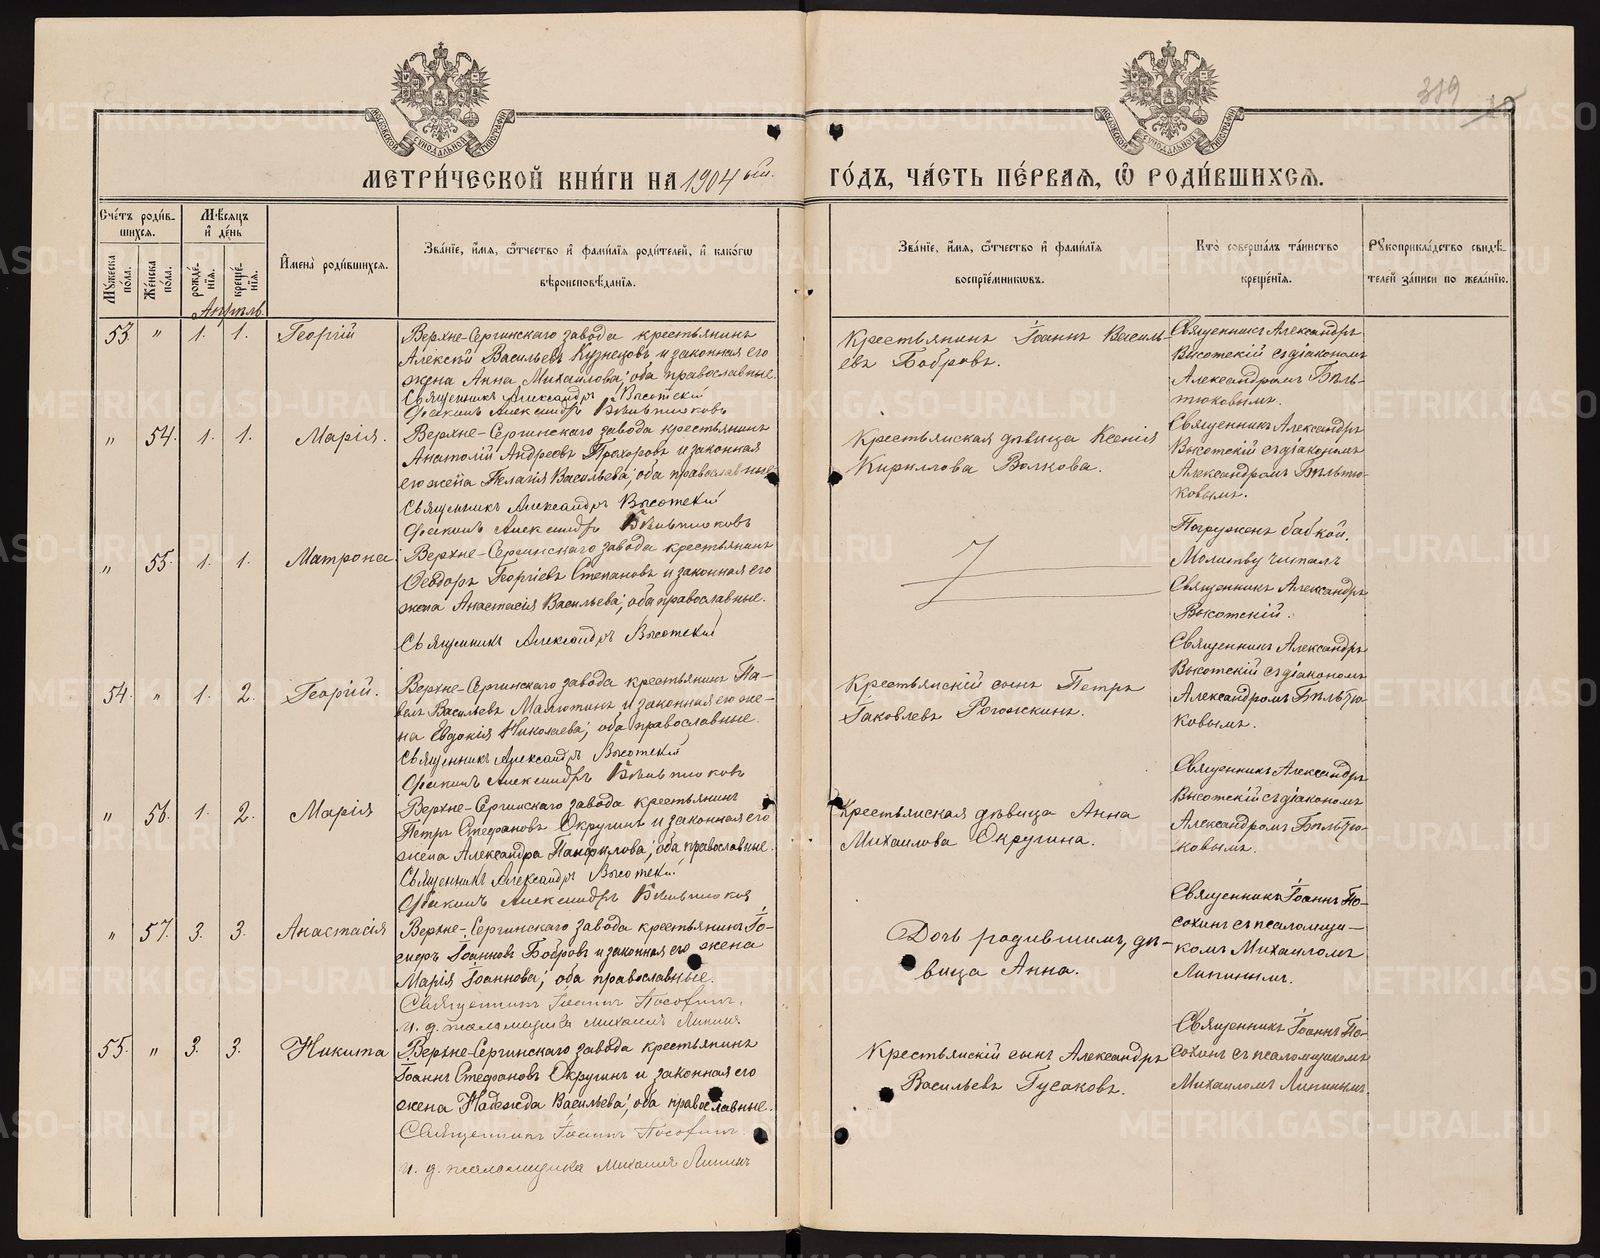 389
МЕТРИ́ЧЕСКОЙ КНИ́ГИ НА 1904 ый. ГО́ДЪ, ЧА́СТЬ ПЕ́РВАЯ, Ѡ РОДИ́ВШИХСЯ.
Сче́тъ роди́в-
шихся.
Му́жеска по́ла.
Же́нска по́ла.
Мѣ́сяцъ
и де́нь
рожде́-
нїя.
креще́-
нїя.
И́мена роди́вшихся.
Зва́нїе, и́мя, ѻ́тчество и фами́лїя роди́телей, и како́гѡ
вѣроисповѣ́данїя.
Зва́нїе, и́мя, ѻ́тчество и фами́лїя
воспрїе́мниковъ.
Кто̀ соверша́лъ та́инство
креще́нїя.
Рꙋкоприкла́дство свидѣ́-
телей за́писи по жела́нїю.
Апрѣль.
53. " 1. 1. Георгій
Верхне-Сергинскаго завода крестьянинъ
Алексѣй Васильевъ Кузнецовъ и законная его
жена Анна Михаилова; оба православные.
Священникъ Александръ Высотскій
Діаконъ Александръ Бѣльтюковъ
Крестьянинъ Іоаннъ Василь-
евъ Бобровъ.
Священникъ Александръ
Высотскій съ діакономъ
Александромъ Бѣль-
тюковымъ.
" 54. 1. 1. Марія.
Верхне-Сергинскаго завода крестьянинъ
Анатолій Андреевъ Прохоровъ и законная
его жена Пелагія Васильева; оба православные
Священникъ Александръ Высотскій
Діаконъ Александръ Бѣльтюковъ
Крестьянская дѣвица Ксенія
Кириллова Волкова.
Священникъ Александръ
Высотскій съ діакономъ
Александромъ Бѣльтю-
ковымъ.
" 55. 1. 1. Матрона
Верхне-Сергинскаго завода крестьянинъ
Ѳеодоръ Георгіевъ Степановъ и законная его
жена Анастасія Васильева; оба православные.
Священникъ Александръ Высотскій
Погруженъ бабкой.
Молитву читалъ
Священникъ Александръ
Высотскій.
54. " 1. 2. Георгій.
Верхне-Сергинскаго завода крестьянинъ Па-
велъ Васильевъ Малютинъ и законная его же-
на Евдокія Николаева; оба православные.
Священникъ Александръ Высотскій
Діаконъ Александръ Бѣльтюковъ
Крестьянскій сынъ Петръ
Іаковлевъ Рогожкинъ.
Священникъ Александръ
Высотскій съ діакономъ
Александромъ Бѣльтю-
ковымъ.
" 56. 1. 2. Марія
Верхне-Сергинскаго завода крестьянинъ
Петръ Стефановъ Округинъ и законная его
жена Александра Панфилова; оба православные.
Священникъ Александръ Высотскій
Діаконъ Александръ Бѣльтюковъ
Крестьянская дѣвица Анна
Михаилова Округина.
Священникъ Александръ
Высотскій съ діакономъ
Александромъ Бѣльтю-
ковымъ.
" 57. 3. 3. Анастасія
Верхне-Сергинскаго завода крестьянинъ Іо-
сифъ Іоанновъ Бобровъ и законная его жена
Марія Іоаннова; оба православные.
Священникъ Іоаннъ Посохинъ.
и. д. псаломщика Михаилъ Липинъ
Дочь родившихъ, дѣ-
вица Анна.
Священникъ Іоаннъ По-
сохинъ съ псаломщи-
комъ Михаиломъ
Липинымъ.
55. " 3. 3. Никита
Верхне-Сергинскаго завода крестьянинъ
Іоаннъ Стефановъ Округинъ и законная его
жена Надежда Васильева; оба православные.
Священникъ Іоаннъ Посохинъ.
и. д. псаломщика Михаилъ Липинъ
Крестьянскій сынъ Александръ
Васильевъ Гусаковъ.
Священникъ Іоаннъ По-
сохинъ съ псаломщикомъ
Михаиломъ Липинымъ.
METRIKI.GASO-URAL.RU